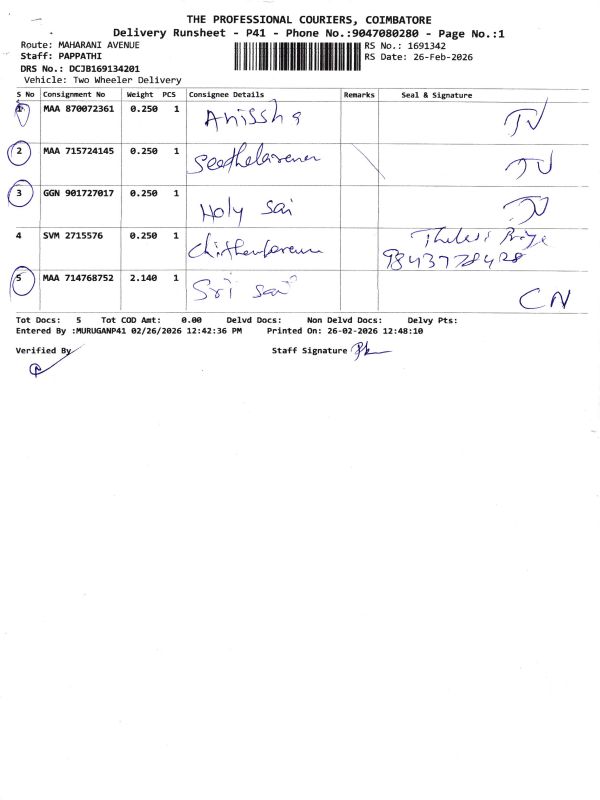 THE PROFESSIONAL COURIERS, COIMBATORE
Delivery Runsheet - P41 - Phone No.:9047080280 - Page No.:1
Route: MAHARANI AVENUE RS No.: 1691342
Staff: PAPPATHI RS Date: 26-Feb-2026
DRS No.: DCJB169134201
Vehicle: Two Wheeler Delivery
S No Consignment No Weight PCS Consignee Details Remarks Seal & Signature
1 MAA 870072361 0.250 1 Anissha
2 MAA 715724145 0.250 1
3 GGN 901727017 0.250 1 Holy Sai
4 SVM 2715576 0.250 1
9843778428
5 MAA 714768752 2.140 1 Sri Sai CN
Tot Docs: 5 Tot COD Amt: 0.00 Delvd Docs: Non Delvd Docs: Delvy Pts:
Entered By :MURUGANP41 02/26/2026 12:42:36 PM Printed On: 26-02-2026 12:48:10
Verified By Staff Signature